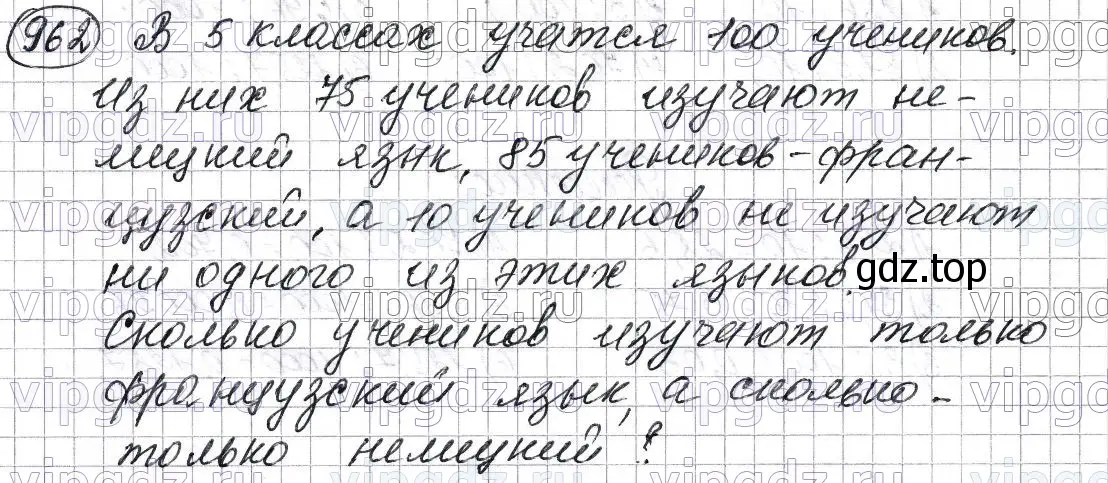 962 В 5 классах учатся 100 учеников.
Из них 75 учеников изучают не-
мецкий язык, 85 учеников - фран-
цузский, а 10 учеников не изучают
ни одного из этих языков.
gdz.top
Сколько учеников изучают только
французский язык, а сколько -
только немецкий?
vipgdz.ru